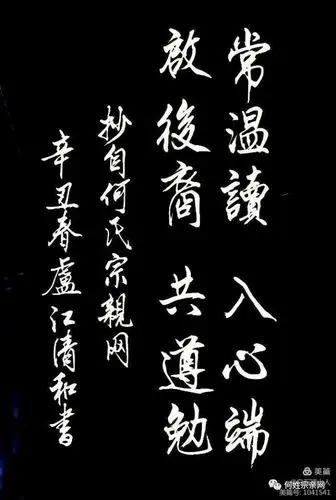 常温讀 入心端
啟後裔 共遵勉
抄自何氏宗親网
辛丑春盧江清和書
美篇
何姓宗亲网
美篇号: 1041541